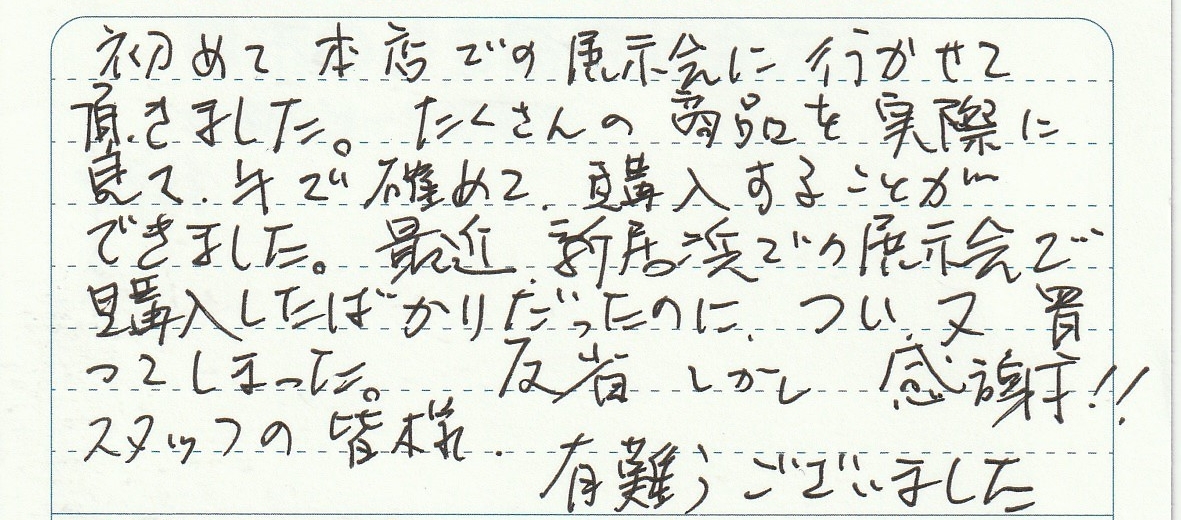 初めて本店での展示会に行かせて
頂きました。たくさんの商品を実際に
見て、手で確めて、購入することが
できました。最近、新居浜での展示会で
購入したばかりだったのに、つい、又買
ってしまった。反省しかし感謝!!
スタッフの皆様、
有難うございました